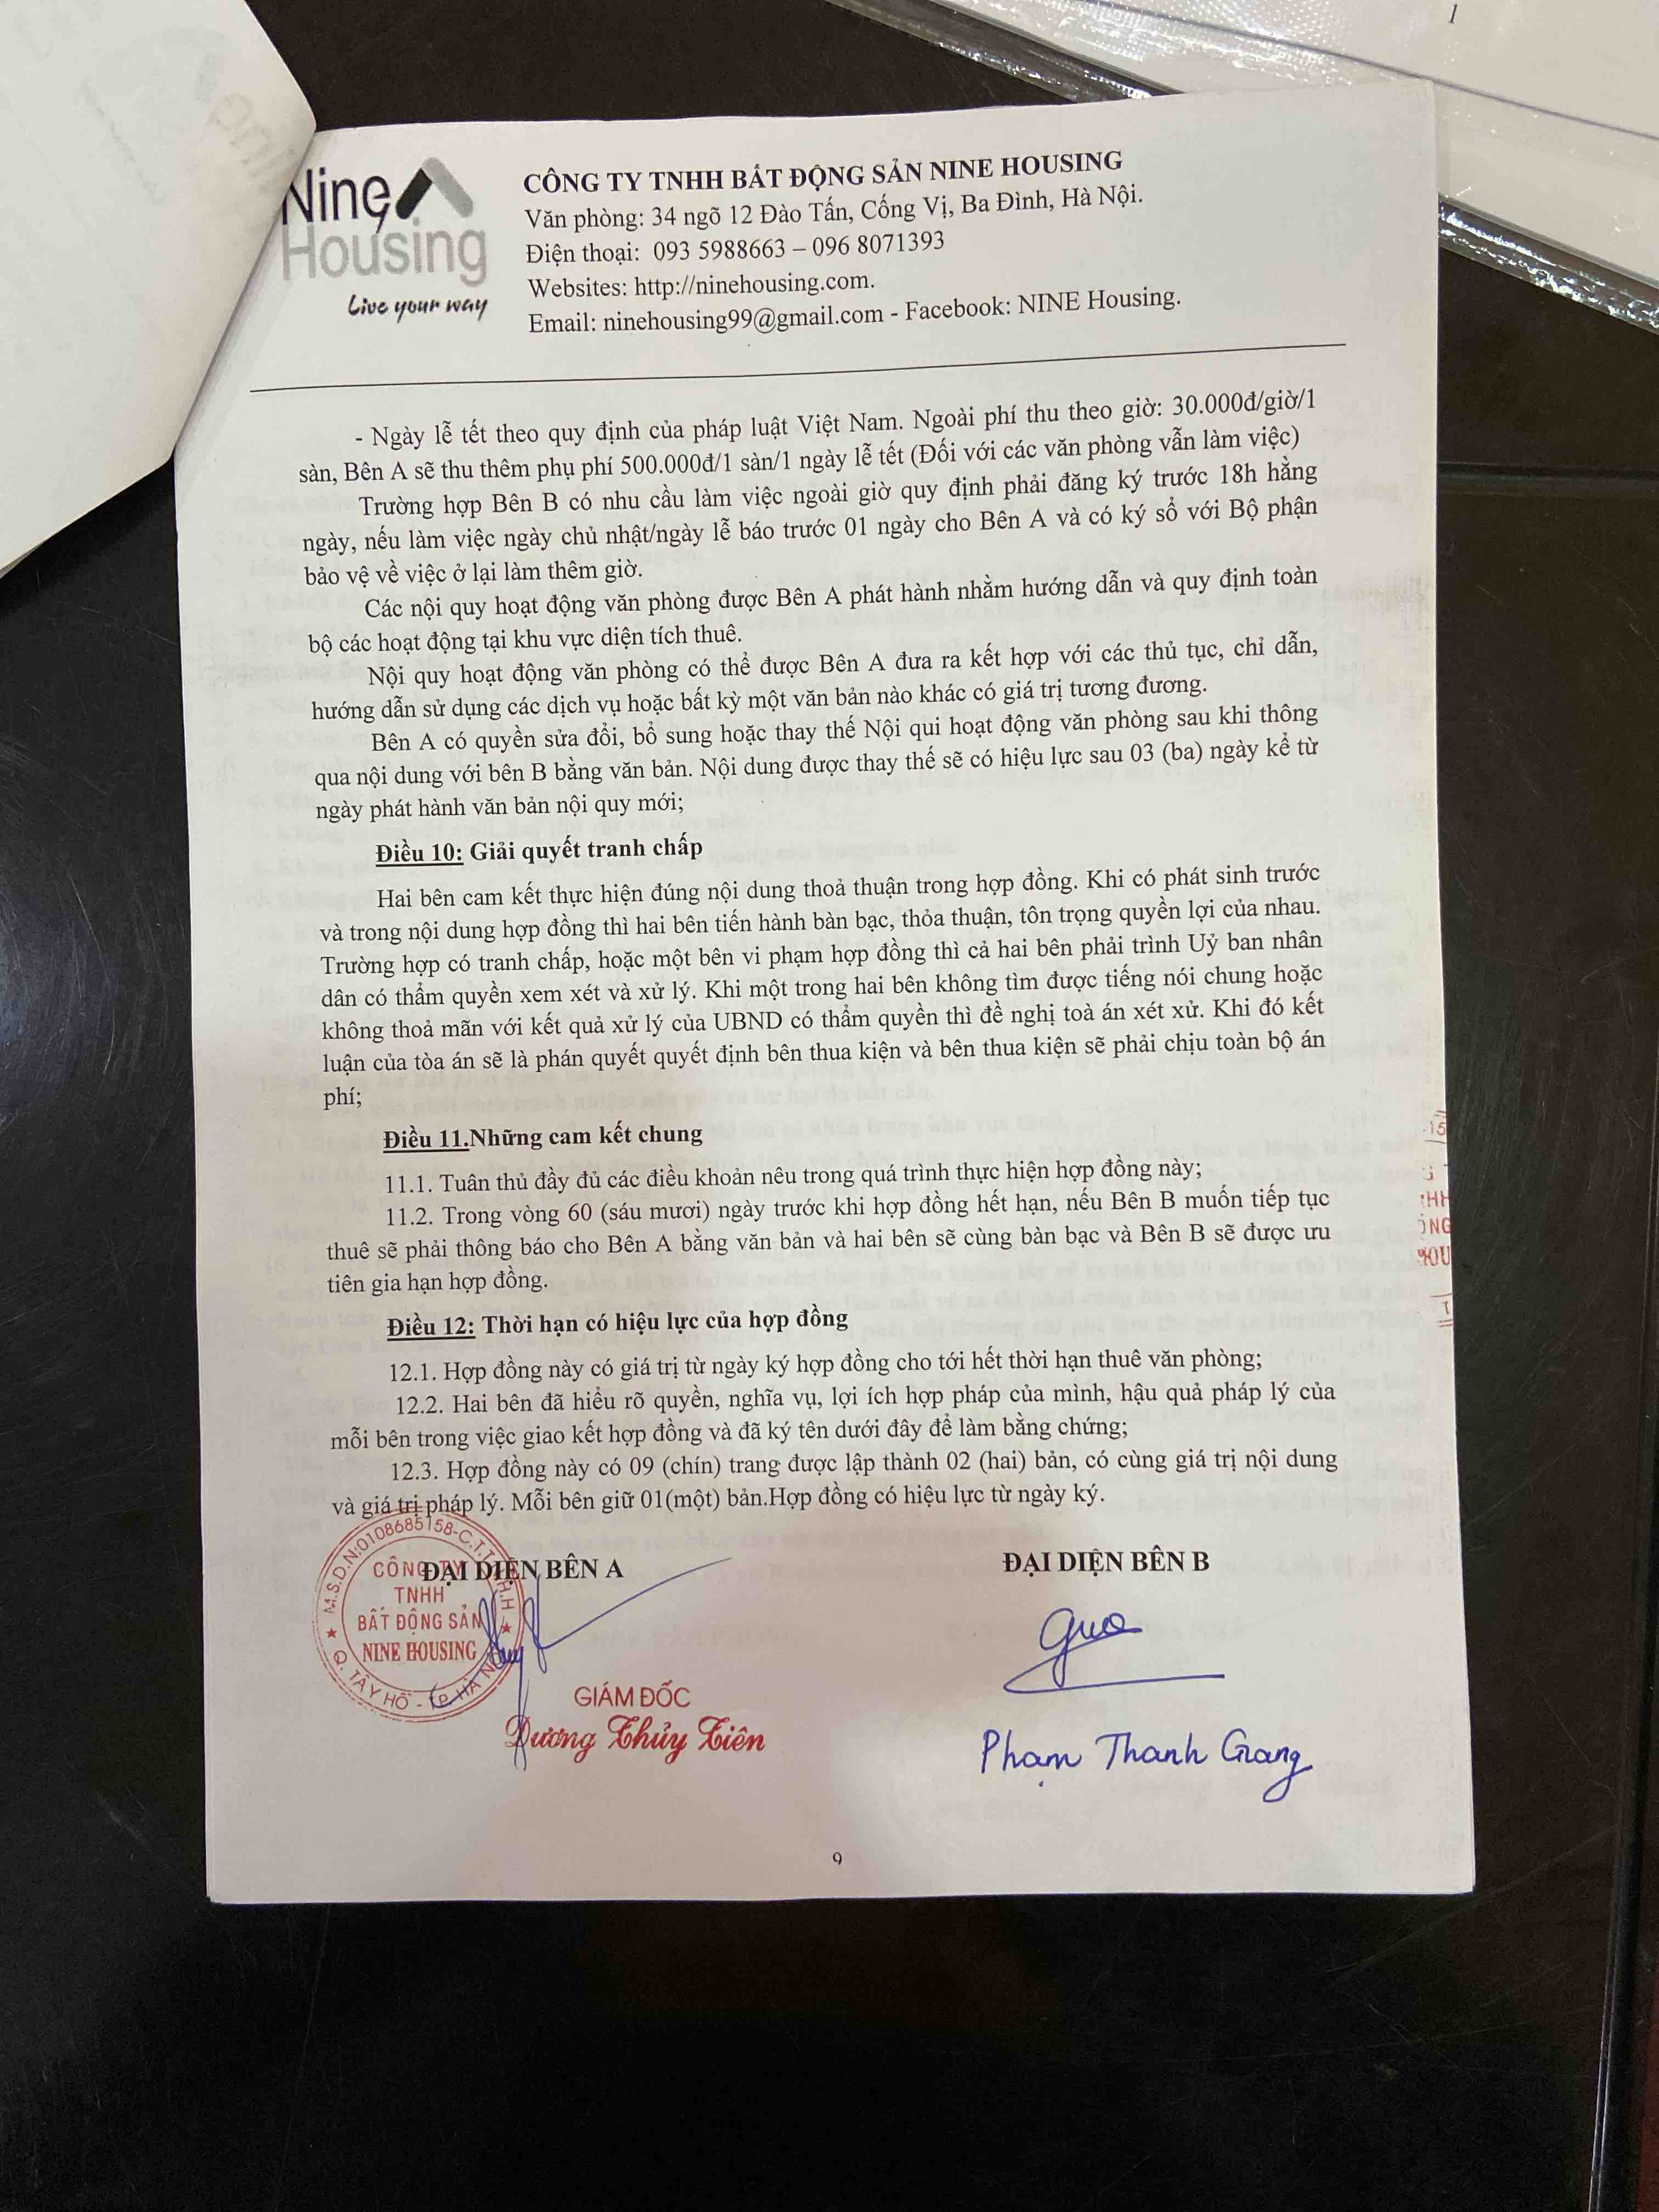 1
Nine
Housing
Live your way
CÔNG TY TNHH BẤT ĐỘNG SẢN NINE HOUSING
Văn phòng: 34 ngõ 12 Đào Tấn, Cống Vị, Ba Đình, Hà Nội.
Điện thoại: 093 5988663 – 096 8071393
Websites: http://ninehousing.com.
Email: ninehousing99@gmail.com - Facebook: NINE Housing.
- Ngày lễ tết theo quy định của pháp luật Việt Nam. Ngoài phí thu theo giờ: 30.000đ/giờ/1
sàn, Bên A sẽ thu thêm phụ phí 500.000đ/1 sàn/1 ngày lễ tết (Đối với các văn phòng vẫn làm việc)
Trường hợp Bên B có nhu cầu làm việc ngoài giờ quy định phải đăng ký trước 18h hằng
ngày, nếu làm việc ngày chủ nhật/ngày lễ báo trước 01 ngày cho Bên A và có ký sổ với Bộ phận
bảo vệ về việc ở lại làm thêm giờ.
Các nội quy hoạt động văn phòng được Bên A phát hành nhằm hướng dẫn và quy định toàn
bộ các hoạt động tại khu vực diện tích thuê.
Nội quy hoạt động văn phòng có thể được Bên A đưa ra kết hợp với các thủ tục, chỉ dẫn,
hướng dẫn sử dụng các dịch vụ hoặc bất kỳ một văn bản nào khác có giá trị tương đương.
Bên A có quyền sửa đổi, bổ sung hoặc thay thế Nội qui hoạt động văn phòng sau khi thông
qua nội dung với bên B bằng văn bản. Nội dung được thay thế sẽ có hiệu lực sau 03 (ba) ngày kể từ
ngày phát hành văn bản nội quy mới;
Điều 10: Giải quyết tranh chấp
Hai bên cam kết thực hiện đúng nội dung thoả thuận trong hợp đồng. Khi có phát sinh trước
và trong nội dung hợp đồng thì hai bên tiến hành bàn bạc, thỏa thuận, tôn trọng quyền lợi của nhau.
Trường hợp có tranh chấp, hoặc một bên vi phạm hợp đồng thì cả hai bên phải trình Uỷ ban nhân
dân có thẩm quyền xem xét và xử lý. Khi một trong hai bên không tìm được tiếng nói chung hoặc
không thoả mãn với kết quả xử lý của UBND có thẩm quyền thì đề nghị toà án xét xử. Khi đó kết
luận của tòa án sẽ là phán quyết quyết định bên thua kiện và bên thua kiện sẽ phải chịu toàn bộ án
phí;
Điều 11.Những cam kết chung
11.1. Tuân thủ đầy đủ các điều khoản nêu trong quá trình thực hiện hợp đồng này;
11.2. Trong vòng 60 (sáu mươi) ngày trước khi hợp đồng hết hạn, nếu Bên B muốn tiếp tục
thuê sẽ phải thông báo cho Bên A bằng văn bản và hai bên sẽ cùng bàn bạc và Bên B sẽ được ưu
tiên gia hạn hợp đồng.
Điều 12: Thời hạn có hiệu lực của hợp đồng
12.1. Hợp đồng này có giá trị từ ngày ký hợp đồng cho tới hết thời hạn thuê văn phòng;
12.2. Hai bên đã hiểu rõ quyền, nghĩa vụ, lợi ích hợp pháp của mình, hậu quả pháp lý của
mỗi bên trong việc giao kết hợp đồng và đã ký tên dưới đây để làm bằng chứng;
12.3. Hợp đồng này có 09 (chín) trang được lập thành 02 (hai) bản, có cùng giá trị nội dung
và giá trị pháp lý. Mỗi bên giữ 01(một) bản.Hợp đồng có hiệu lực từ ngày ký.
ĐẠI DIỆN BÊN A
ĐẠI DIỆN BÊN B
M.S.D.N:0108685158-C.T.T.N.H.H
CÔNG TY
TNHH
BẤT ĐỘNG SẢN
NINE HOUSING
Q. TÂY HỒ - TP. HÀ NỘI
GIÁM ĐỐC
Dương Thủy Tiên
Phạm Thanh Giang
9